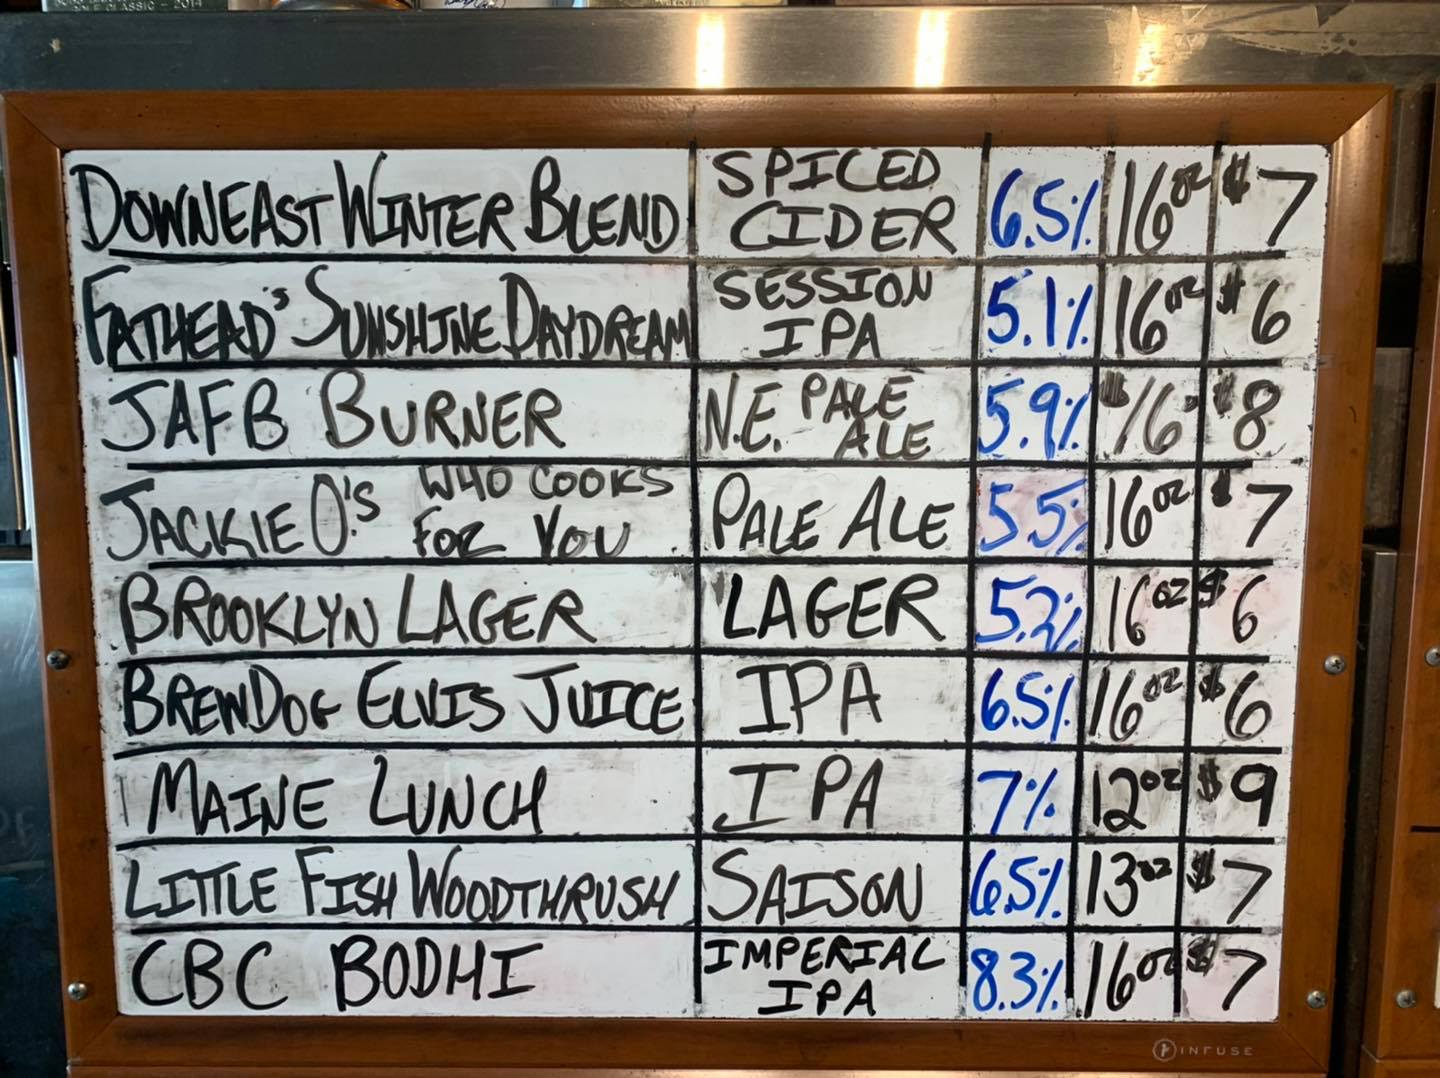 CLASSIC - 2014
DOWNEAST WINTER BLEND SPICED CIDER 6.5% 16oz $7
FATHEAD'S SUNSHINE DAYDREAM SESSION IPA 5.1% 16oz $6
JAFB BURNER N.E. PALE ALE 5.9% 16 $8
JACKIE O'S WHO COOKS FOR YOU PALE ALE 5.5% 16oz $7
BROOKLYN LAGER LAGER 5.2% 16oz $6
BREWDOG ELVIS JUICE IPA 6.5% 16oz $6
MAINE LUNCH IPA 7% 12oz $9
LITTLE FISH WOODTHRUSH SAISON 6.5% 13oz $7
CBC BODHI IMPERIAL IPA 8.3% 16oz $7
INFUSE